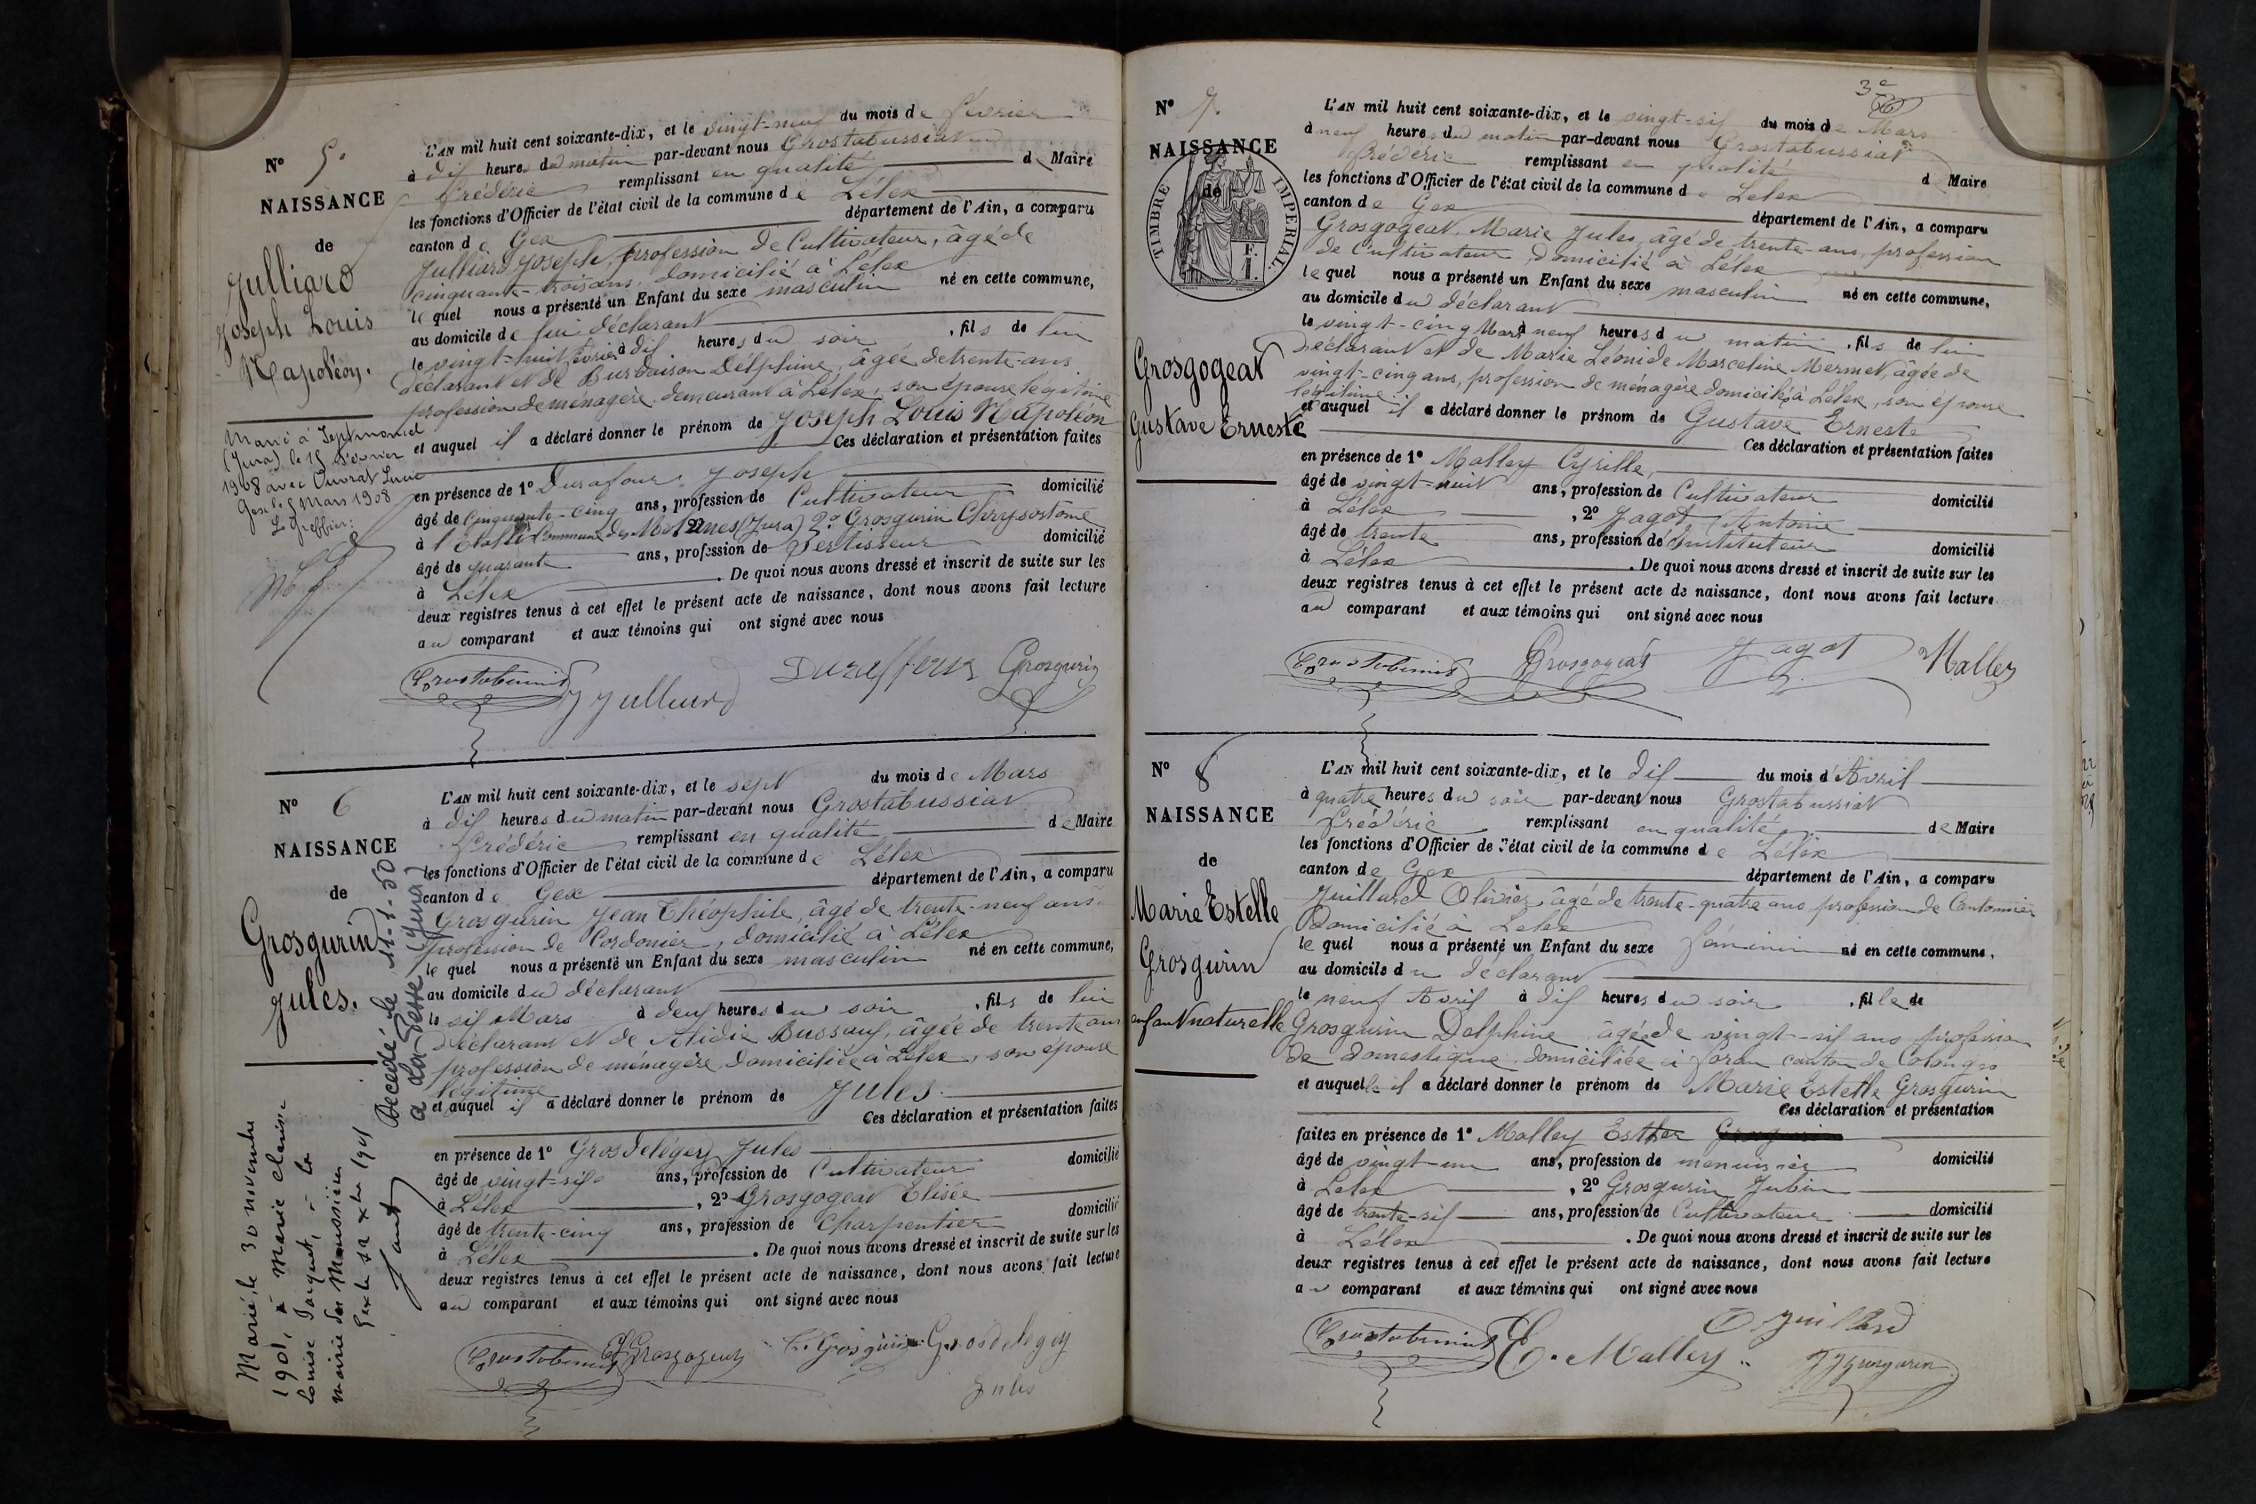 N° 5.
NAISSANCE
de
Julliard
Joseph Louis
Napoléon.
Marié à Septmoncel
(Jura) le 15 février
1908 avec Ouvrat
Gex le 8 mars 1908
Le Greffier:
L'AN mil huit cent soixante-dix, et le vingt-neuf du mois de février
à dix heures du matin par-devant nous Grostabussiat
Frédéric remplissant en qualité de Maire
les fonctions d'Officier de l'état civil de la commune de Lélex
canton de Gex département de l'Ain, a comparu
Julliard Joseph, profession de Cultivateur, âgé de
cinquante-trois ans, domicilié à Lélex
lequel nous a présenté un Enfant du sexe masculin né en cette commune,
au domicile de lui déclarant
le vingt-huit février à dix heures du soir, fils de lui
déclarant et de Burdaison Délphine, âgée de trente-ans
profession de ménagère demeurant à Lélex, son épouse légitime
et auquel il a déclaré donner le prénom de Joseph Louis Napoléon
Ces déclaration et présentation faites
en présence de 1° Durafour Joseph
âgé de cinquante-cing ans, profession de Cultivateur domicilié
à Commune des Molunes (Jura) 2° Grosgurin Chrysostome
âgé de quarante ans, profession de Pertisseur domicilié
à Lélex . De quoi nous avons dressé et inscrit de suite sur les
deux registres tenus à cet effet le présent acte de naissance, dont nous avons fait lecture
au comparant et aux témoins qui ont signé avec nous
Grostabussiat J Julliard Duraffour Grosgurin
N° 6
NAISSANCE
de
Grosgurin
Jules.
Décédé le 11-1-50
à (Jura)
Marié, le 30 novembre
1901, à Marie clarisse
Louise Jacquet, à la
mairie des Moussières
Gex le 12 Xbre 1901
L'AN mil huit cent soixante-dix, et le sept du mois de Mars
à dix heures du matin par-devant nous Grostabussiat
Frédéric remplissant en qualité de Maire
les fonctions d'Officier de l'état civil de la commune de Lélex
canton de Gex département de l'Ain, a comparu
Grosgurin Jean Théophile, âgé de trente-neuf ans
profession de Cordonier, domicilié à Lélex
lequel nous a présenté un Enfant du sexe masculin né en cette commune,
au domicile du déclarant
le six Mars à deux heures du soir, fils de lui
déclarant et de Alidie Bussouf, âgée de trente ans
profession de ménagère domiciliée à Lélex, son épouse
légitime
et auquel il a déclaré donner le prénom de Jules
Ces déclaration et présentation faites
en présence de 1° Grosdelégey Jules
âgé de vingt-six ans, profession de Cultivateur domicilié
à Lélex, 2° Grosgogeat Elisée
âgé de trente-cinq ans, profession de Charpentier domicilié
à Lélex . De quoi nous avons dressé et inscrit de suite sur les
deux registres tenus à cet effet le présent acte de naissance, dont nous avons fait lecture
au comparant et aux témoins qui ont signé avec nous
Grostabussiat Grosgogeat Grosgurin Grosdelegey
Jules
3e
N° 7.
NAISSANCE
de
TIMBRE IMPERIAL.
Grosgogeat
Gustave Erneste
L'AN mil huit cent soixante-dix, et le vingt-six du mois de Mars
à neuf heures du matin par-devant nous Grostabussiat
Frédéric remplissant en qualité d Maire
les fonctions d'Officier de l'état civil de la commune de Lelex
canton de Gex département de l'Ain, a comparu
Grosgogeat Marie Jules âgé de trente-ans, profession
de Cultivateur domicilié à Lélex
lequel nous a présenté un Enfant du sexe masculin né en cette commune,
au domicile du déclarant
le vingt-cinq Mars à neuf heures du matin, fils de lui
déclarant et de Marie Léonide Marceline Mermet, âgée de
vingt-cinq ans, profession de ménagère domiciliée à Lélex, son épouse
légitime
et auquel il a déclaré donner le prénom de Gustave Erneste
Ces déclaration et présentation faites
en présence de 1° Molley Cyrille,
âgé de vingt-huit ans, profession de Cultivateur domicilié
à Lélex, 2° Jagot Antoine
âgé de trente ans, profession de Instituteur domicilié
à Lélex . De quoi nous avons dressé et inscrit de suite sur les
deux registres tenus à cet effet le présent acte de naissance, dont nous avons fait lecture
au comparant et aux témoins qui ont signé avec nous
Grostabussiat Grosgogeat Jagot Malley
N° 8
NAISSANCE
de
Marie Estelle
Grosgurin
enfant naturelle
L'AN mil huit cent soixante-dix, et le dix du mois d'Avril
à quatre heures du soir par-devant nous Grostabussiat
Frédéric remplissant en qualité de Maire
les fonctions d'Officier de l'état civil de la commune de Lélex
canton de Gex département de l'Ain, a comparu
Juillard Olivier, âgé de trente-quatre ans profession de Cantonnier
Domicilié à Lelex
lequel nous a présenté un Enfant du sexe féminin né en cette commune,
au domicile du déclarant
le neuf Avril à dix heures du soir, fille de
Grosgurin Delphine âgée de vingt-six ans profession
de domestique domiciliée à foran canton de Colonges
et auquelle il a déclaré donner le prénom de Marie Estelle Grosgurin
Ces déclaration et présentation
faites en présence de 1° Molley Esther Grosgurin
âgé de vingt-un ans, profession de menuisier domicilié
à Lelex, 2° Grosgurin Jubin
âgé de trente-six ans, profession de Cultivateur domicilié
à Lélex . De quoi nous avons dressé et inscrit de suite sur les
deux registres tenus à cet effet le présent acte de naissance, dont nous avons fait lecture
au comparant et aux témoins qui ont signé avec nous
Grostabussiat E. Malley O Juillard
JJ Grosgurin